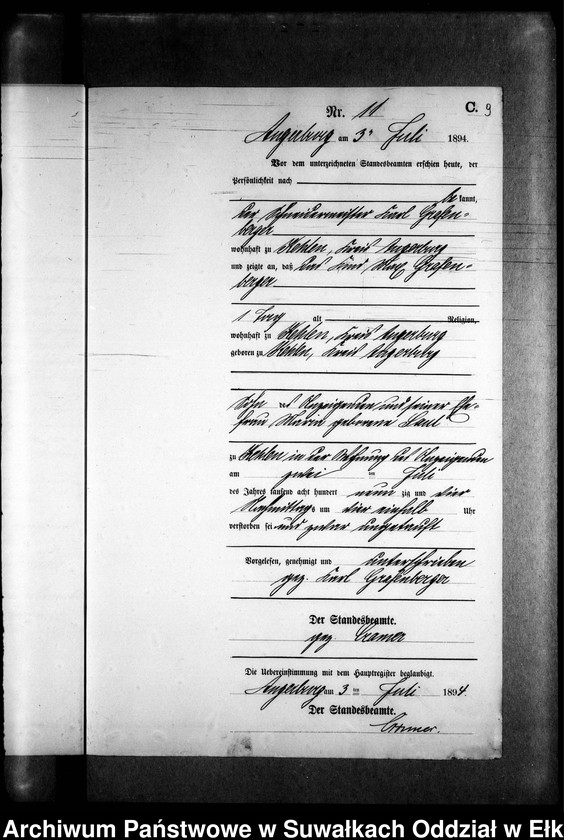 Nr. 11
C. 9
Angerburg am 3n Juli 1894.
Vor dem unterzeichneten Standesbeamten erschien heute, der
Persönlichkeit nach
be kannt,
der Schneidermeister Karl Grafen-
berger
wohnhaft zu Kehlen, Kreis Angerburg
und zeigte an, daß das Kind Max Grafen-
berger
1 Tag alt Religion,
wohnhaft zu Kehlen, Kreis Angerburg
geboren zu Kehlen, Kreis Angerburg
Sohn des Anzeigenden und seiner Ehe-
frau Maria geborene
zu Kehlen in der Wohnung des Anzeigenden
am zwei ten Juli
des Jahres tausend acht hundert neun zig und vier
Nachmittags um vier einhalb Uhr
verstorben sei und zwar ungetauft
Vorgelesen, genehmigt und unterschrieben
gez. Karl Grafenberger
Der Standesbeamte.
gez. Cramer
Die Uebereinstimmung mit dem Hauptregister beglaubigt.
Angerburg am 3. ten Juli 1894.
Der Standesbeamte.
Cramer.
Archiwum Państwowe w Suwałkach Oddział w Ełk